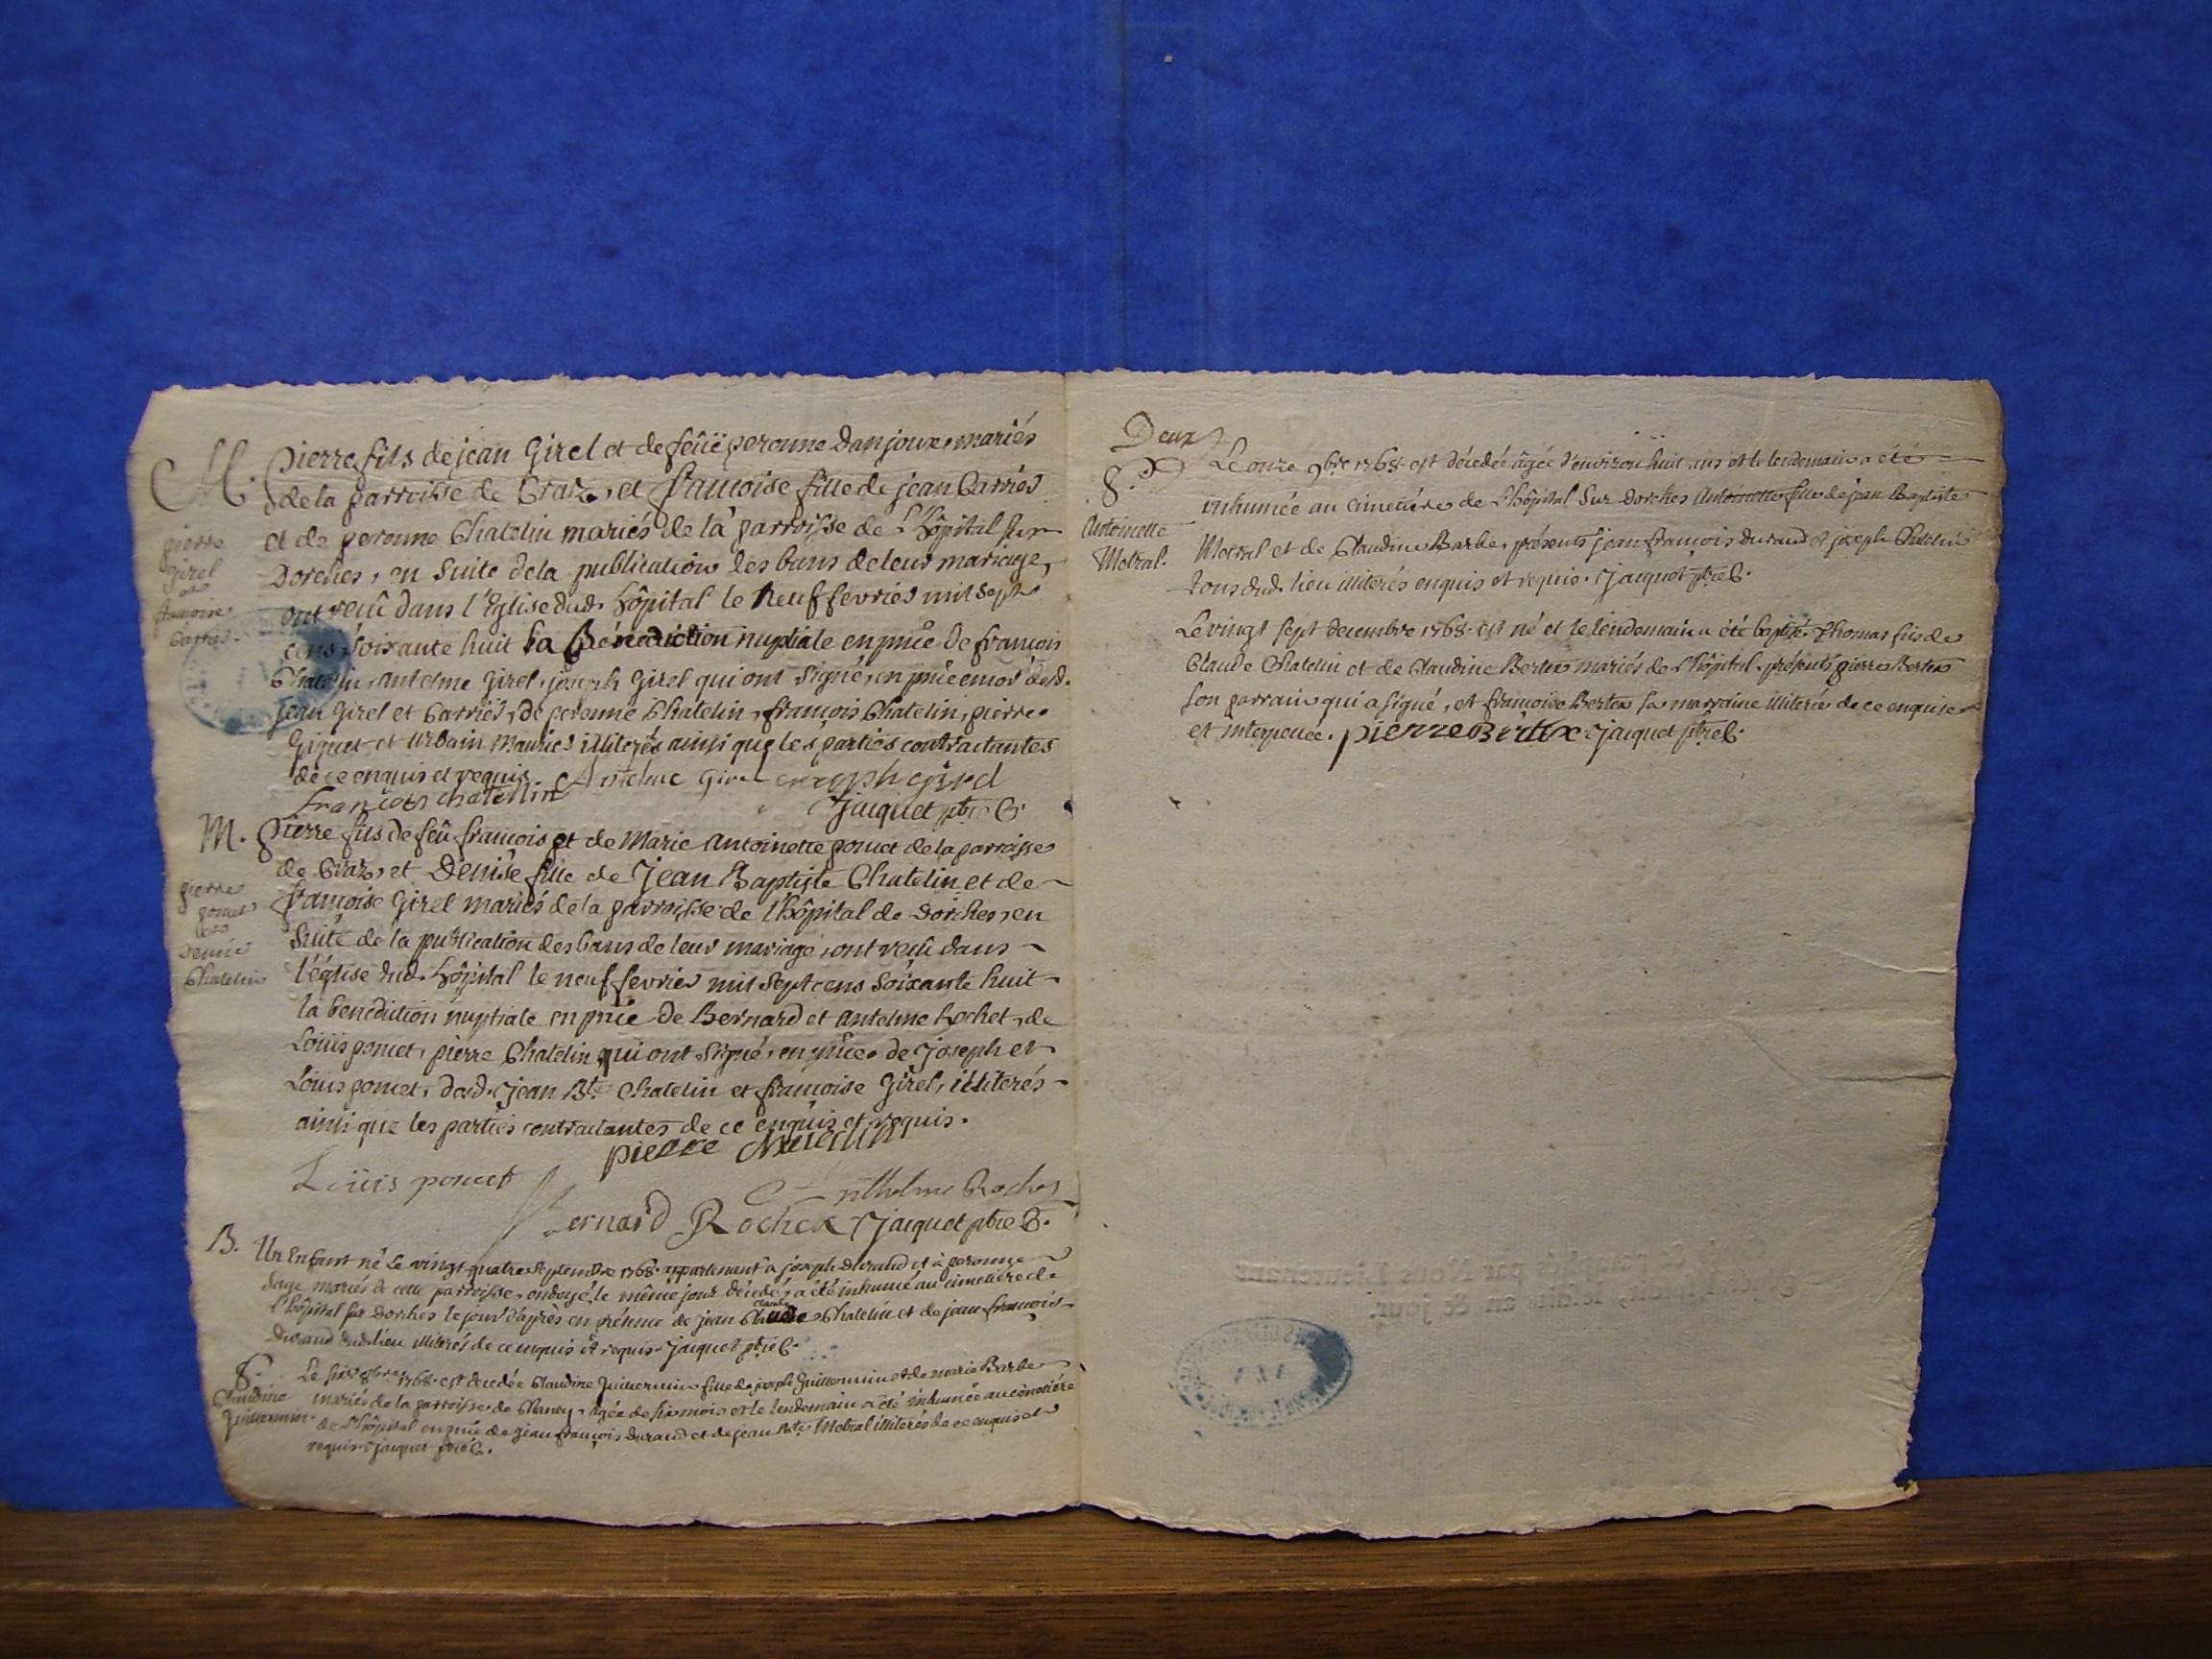 M. pierre fils de jean Girel et de feüe peronne Danjoux mariés
de la parroisse de Craz, et francoise fille de jean Carrier
et de peronne Chatelin mariés de la parroisse de L'Hôpital sur
Dorches, en Suite dela publication des bans de leur mariage,
ont reçû dans l'Eglise dud. hôpital le neuf fevrier mil sept
cens soixante huit la Bénédiction nuptiale en pñce de francois
Chatelin, Antelme Girel, joseph Girel qui ont signé, en pñce encor desd.
jean Girel et Carrier, de peronne Chatelin, françois Chatelin, pierre
et urbain Maurier illiterés ainsi que les parties contractantes
de ce enquis et requis. Antelme Girel joseph girel
francois chatellin Jacquet ptre C.
pierre
girel
et
francoise
Carrier
M. pierre fils de feû francois et de Marie Antoinette poncet de la parroisse
de Craz, et Denise fille de Jean Baptiste Chatelin et de
francoise Girel mariés de la parroisse de l'hôpital de Dorches, en
Suite de la publication des bans de leur mariage, ont reçû dans
l'église dud. hôpital le neuf fevrier mil sept cens soixante huit
la benediction nuptiale en pñce de Bernard et antelme Rochet, de
Loüis poncet, pierre Chatelin qui ont signé, en pñce de joseph et
Loüis poncet, desd. jean Bte. Chatelin et francoise Girel, illiterés
ainsi que les parties contractantes de ce enquis et requis.
pierre
poncet
et
Denise
Chatelin
pierre
Loüis poncet Anthelme Rochet
Bernard Rochet Jacquet ptre C.
B. Un Enfant né Le vingt quatre septembre 1768. appartenant à joseph durand et à peronne
Sage mariés de cette parroisse, ondoyé le même jour décédé, a été inhumé au cimetiere de
l'hôpital sur Dorches le jour d'après en présence de jean Claude Chatelin et de jean françois
Durand dud. lieu illiterés de ce enquis et requis. Jacquet ptre C.
S. Le six 1768. est decedée Claudine Guillermin fille de joseph Guillermin et de marie Barbe
mariés de la parroisse de Chaney, agée de six mois et le lendemain a été inhumée au cimetiére
de l'hôpital en pñce de jean françois Durand et de jean Bte. Metral illiterés de ce enquis et
requis Jacquet ptre C.
Claudine
Guillermin
Deux
S. Le onze 9bre 1768. est décedée âgée d'environ huit ans et le lendemain a été
inhumée au cimetiére de L'hôpital sur Dorches Antoinette fille de jean Baptiste
Metral et de Claudine Barbe, présents jean françois durand et joseph Chatelin
tous dud. lieu illiterés enquis et requis. Jacquet ptre C.
Antoinette
Metral.
Le vingt sept decembre 1768. est né et le lendemain a été baptisé Thomas fils de
Claude Chatelin et de Claudine Bertex mariés de L'hôpital, présents pierre Bertex
son parrain qui a signé, et francoise Bertex sa marraine illiterée de ce enquise
et interpellée. pierre Bertex Jacquet ptre C.